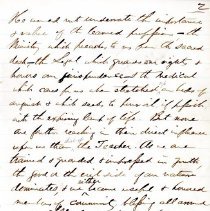 2
He would not underrate the importance
& value of the learned professions — the
Ministry which preaches to us from the Sacred
desk — the Legal which guards our rights &
honors our jurisprudence & the Medical
which cares for us when stretched on beds of
anguish & which seeks to
with the expiring lamp of life. But none
are further reaching in their direct influence
upon us than the Teacher. As we are
trained & guarded & in youth,
the good or the evil side of our nature
dominates & we become useful & honored
members of community, all around